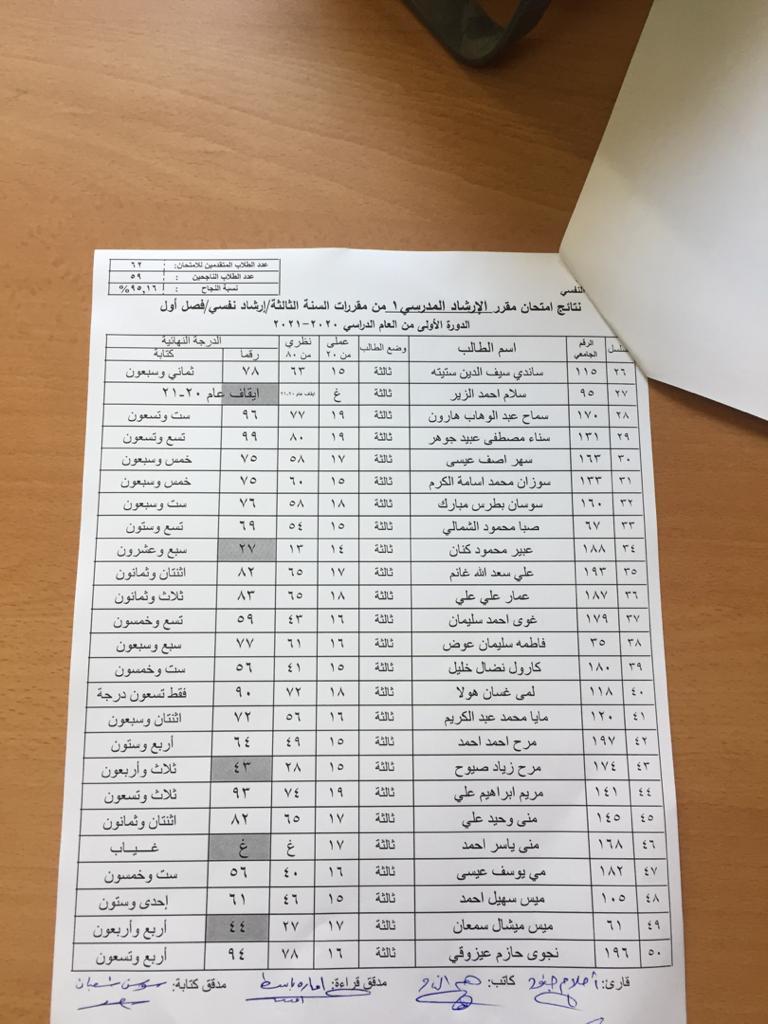 عدد الطلاب المتقدمين للامتحان: ٦٢
عدد الطلاب الناجحين : ٥٩
نسبة النجاح : ٩٥,١٦%
النفسي
نتائج امتحان مقرر الإرشاد المدرسي ١ من مقررات السنة الثالثة/إرشاد نفسي/فصل أول
الدورة الأولى من العام الدراسي ٢٠٢٠-٢٠٢١
الرقم الجامعي اسم الطالب وضع الطالب عملي من ٢٠ نظري من ٨٠ الدرجة النهائية رقما كتابة
٢٦ ١١٥ ساندي سيف الدين ستيته ثالثة ١٥ ٦٣ ٧٨ ثماني وسبعون
٢٧ ٩٥ سلام احمد الزير ثالثة غ ايقاف عام ٢٠-٢١ ايقاف عام ٢٠-٢١
٢٨ ١٧٠ سماح عبد الوهاب هارون ثالثة ١٩ ٧٧ ٩٦ ست وتسعون
٢٩ ١٣١ سناء مصطفى عبيد جوهر ثالثة ١٩ ٨٠ ٩٩ تسع وتسعون
٣٠ ١٦٣ سهر اصف عيسى ثالثة ١٧ ٥٨ ٧٥ خمس وسبعون
٣١ ١٣٣ سوزان محمد اسامة الكرم ثالثة ١٥ ٦٠ ٧٥ خمس وسبعون
٣٢ ١٦٠ سوسان بطرس مبارك ثالثة ١٨ ٥٨ ٧٦ ست وسبعون
٣٣ ٦٧ صبا محمود الشمالي ثالثة ١٥ ٥٤ ٦٩ تسع وستون
٣٤ ١٨٨ عبير محمود كنان ثالثة ١٤ ١٣ ٢٧ سبع وعشرون
٣٥ ١٩٣ علي سعد الله غانم ثالثة ١٧ ٦٥ ٨٢ اثنتان وثمانون
٣٦ ١٨٧ عمار علي علي ثالثة ١٨ ٦٥ ٨٣ ثلاث وثمانون
٣٧ ١٧٩ غوى احمد سليمان ثالثة ١٦ ٤٣ ٥٩ تسع وخمسون
٣٨ ٣٥ فاطمه سليمان عوض ثالثة ١٦ ٦١ ٧٧ سبع وسبعون
٣٩ ١٨٠ كارول نضال خليل ثالثة ١٥ ٤١ ٥٦ ست وخمسون
٤٠ ١١٨ لمى غسان هولا ثالثة ١٨ ٧٢ ٩٠ فقط تسعون درجة
٤١ ١٢٠ مايا محمد عبد الكريم ثالثة ١٦ ٥٦ ٧٢ اثنتان وسبعون
٤٢ ١٩٧ مرح احمد احمد ثالثة ١٥ ٤٩ ٦٤ أربع وستون
٤٣ ١٧٤ مرح زياد صيوح ثالثة ١٥ ٢٨ ٤٣ ثلاث وأربعون
٤٤ ١٤١ مريم ابراهيم علي ثالثة ١٩ ٧٤ ٩٣ ثلاث وتسعون
٤٥ ١٤٥ منى وحيد علي ثالثة ١٧ ٦٥ ٨٢ اثنتان وثمانون
٤٦ ١٦٨ منى ياسر احمد ثالثة ١٧ غ غ غــيــاب
٤٧ ١٨٢ مي يوسف عيسى ثالثة ١٦ ٤٠ ٥٦ ست وخمسون
٤٨ ١٠٥ ميس سهيل احمد ثالثة ١٥ ٤٦ ٦١ إحدى وستون
٤٩ ٦١ ميس ميشال سمعان ثالثة ١٧ ٢٧ ٤٤ أربع وأربعون
٥٠ ١٩٦ نجوى حازم عيزوقي ثالثة ١٦ ٧٨ ٩٤ أربع وتسعون
قارئ: أحلام كاتب: مدقق قراءة: مدقق كتابة: